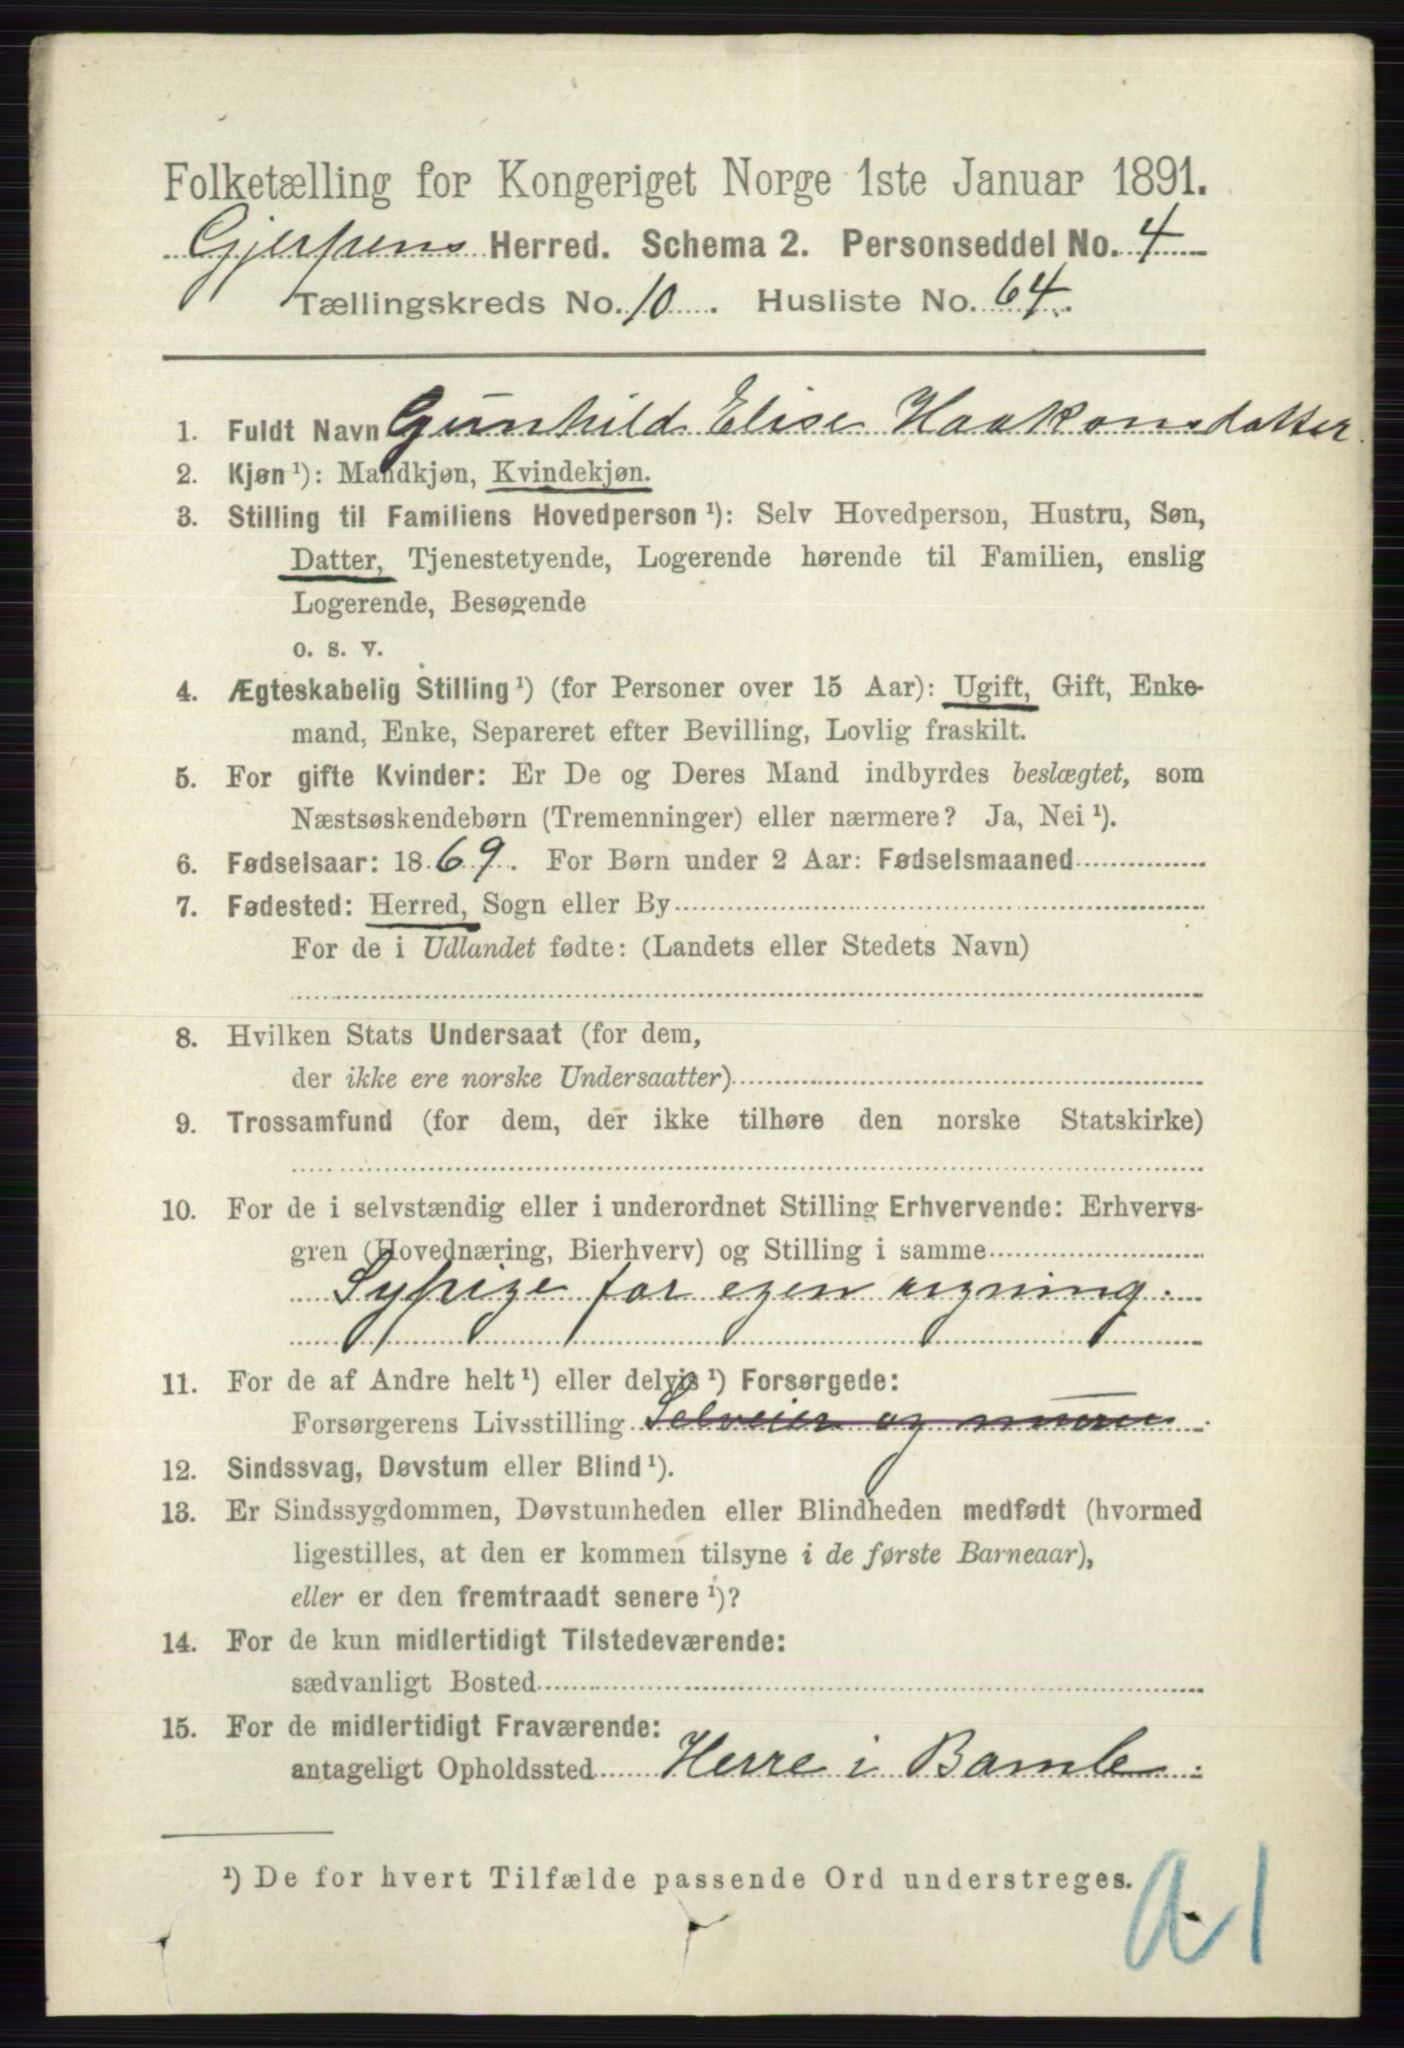 Folketælling for Kongeriget Norge 1ste Januar 1891.
Gjerpens Herred. Schema 2. Personseddel No. 4
Tællingskreds No. 10. Husliste No. 64.
1. Fuldt Navn Gunhild Elise Haakonsdatter
2. Kjøn ¹): Mandkjøn, Kvindekjøn.
3. Stilling til Familiens Hovedperson ¹): Selv Hovedperson, Hustru, Søn,
Datter, Tjenestetyende, Logerende hørende til Familien, enslig
Logerende, Besøgende
o. s. v.
4. Ægteskabelig Stilling ¹) (for Personer over 15 Aar): Ugift, Gift, Enke-
mand, Enke, Separeret efter Bevilling, Lovlig fraskilt.
5. For gifte Kvinder: Er De og Deres Mand indbyrdes beslægtet, som
Næstsøskendebørn (Tremenninger) eller nærmere? Ja, Nei ¹).
6. Fødselsaar: 1869. For Børn under 2 Aar: Fødselsmaaned
7. Fødested: Herred, Sogn eller By
For de i Udlandet fødte: (Landets eller Stedets Navn)
8. Hvilken Stats Undersaat (for dem,
der ikke ere norske Undersaatter)
9. Trossamfund (for dem, der ikke tilhøre den norske Statskirke)
10. For de i selvstændig eller i underordnet Stilling Erhvervende: Erhvervs-
gren (Hovednæring, Bierhverv) og Stilling i samme
Sypige for egen regning.
11. For de af Andre helt ¹) eller delvis ¹) Forsørgede:
Forsørgerens Livsstilling Selveier og murer
12. Sindssvag, Døvstum eller Blind ¹).
13. Er Sindssygdommen, Døvstumheden eller Blindheden medfødt (hvormed
ligestilles, at den er kommen tilsyne i de første Barneaar),
eller er den fremtraadt senere ¹)?
14. For de kun midlertidigt Tilstedeværende:
sædvanligt Bosted
15. For de midlertidigt Fraværende:
antageligt Opholdssted Herre i Bamle.
¹) De for hvert Tilfælde passende Ord understreges.
a1